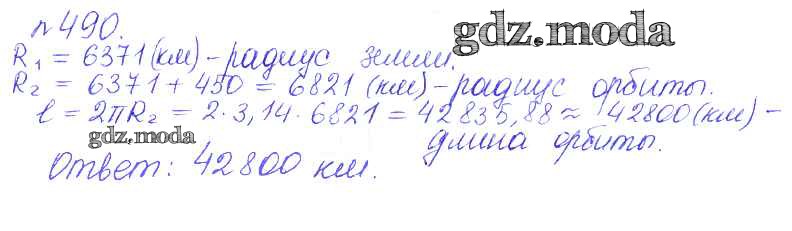 №490.
gdz.moda
R₁ = 6371 (км) – радиус земли.
R₂ = 6371 + 450 = 6821 (км) – радиус орбиты.
ℓ = 2πR₂ = 2·3,14·6821 = 42835,88 ≈ 42800 (км) –
gdz.moda
длина орбиты.
Ответ: 42800 км.